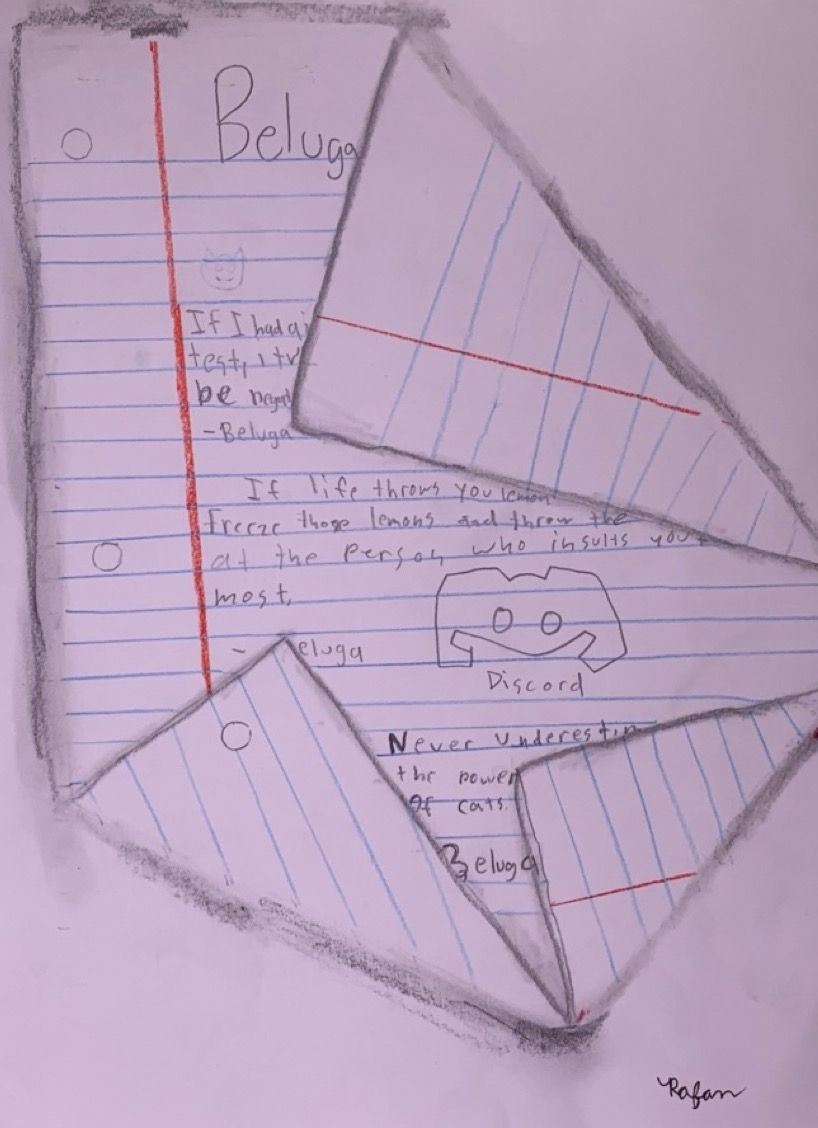 Beluga
If I had a
test, it
be negat
-Beluga
If life throws you lemon
freeze those lemons and throw the
at the person who insults you
most.
- eluga
Discord
Never Underestim
the power
of cats.
Beluga
Rafan